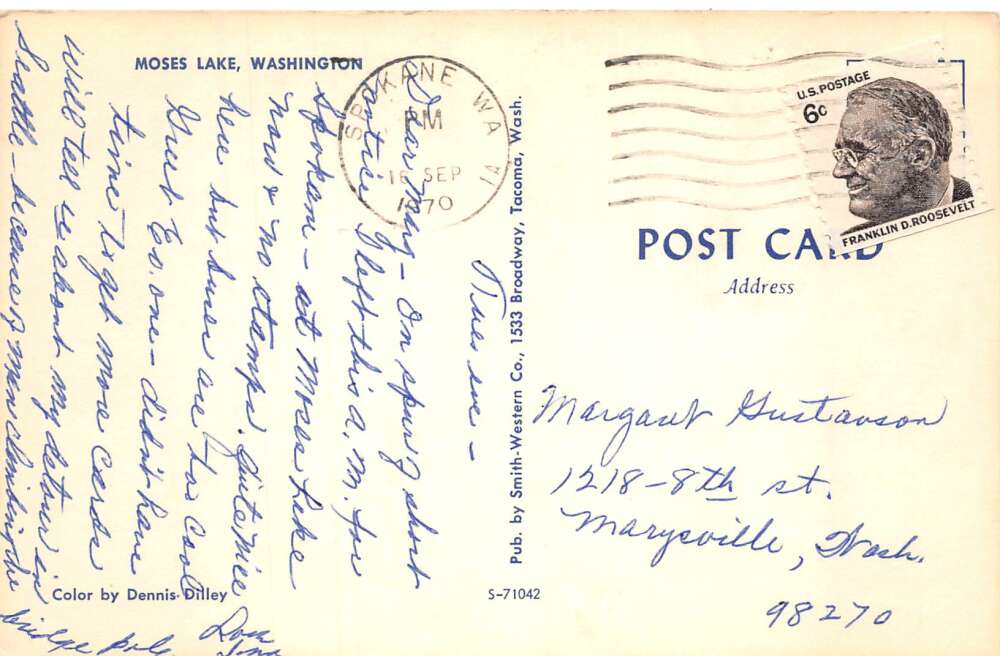 MOSES LAKE, WASHINGTON
SPOKANE WA
PM
16 SEP
1970
U.S. POSTAGE
6c
FRANKLIN D. ROOSEVELT
POST CARD
Address
Tues eve –
Dear Marg – On spur of short
notice I left this a.m. for
Spokane – at Moses Lake
now & no stamps. Quite nice
here but sure are too cool
Guest Co. one – didn't have
time to get more cards
will tell u about my detour in
Seattle – because of man climbing the
bridge pole.
Love
Pub. by Smith-Western Co., 1533 Broadway, Tacoma, Wash.
Margaret Gustavson
1218-8th st.
Marysville, Wash.
98270
Color by Dennis Dilley
S-71042